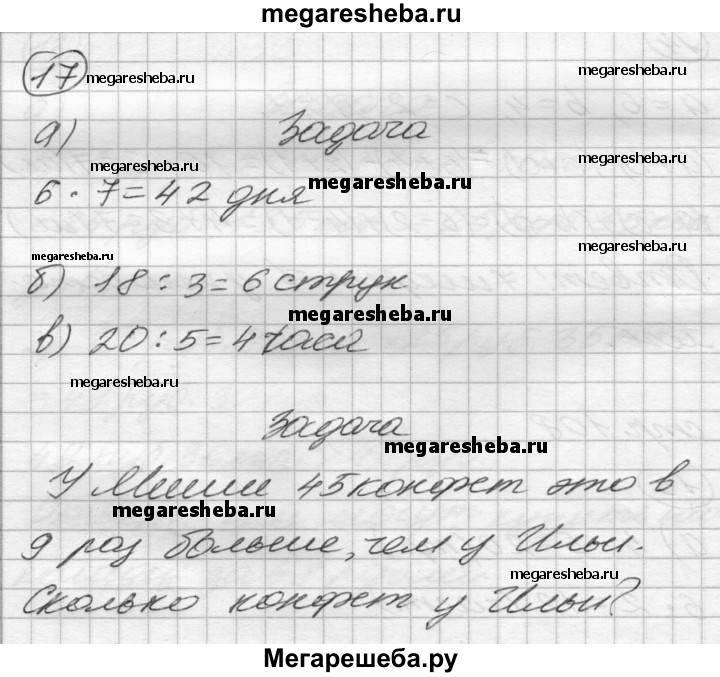 megaresheba.ru
17 megaresheba.ru megaresheba.ru
а) Задача
megaresheba.ru megaresheba.ru
6 · 7 = 42 дня megaresheba.ru
megaresheba.ru megaresheba.ru
б) 18 : 3 = 6 струк
megaresheba.ru
в) 20 : 5 = 4 часа
megaresheba.ru
Задача
megaresheba.ru
У Миши 45 конфет это в
megaresheba.ru
9 раз больше, чем у Ильи.
megaresheba.ru
Сколько конфет у Ильи?
Мегарешеба.ру